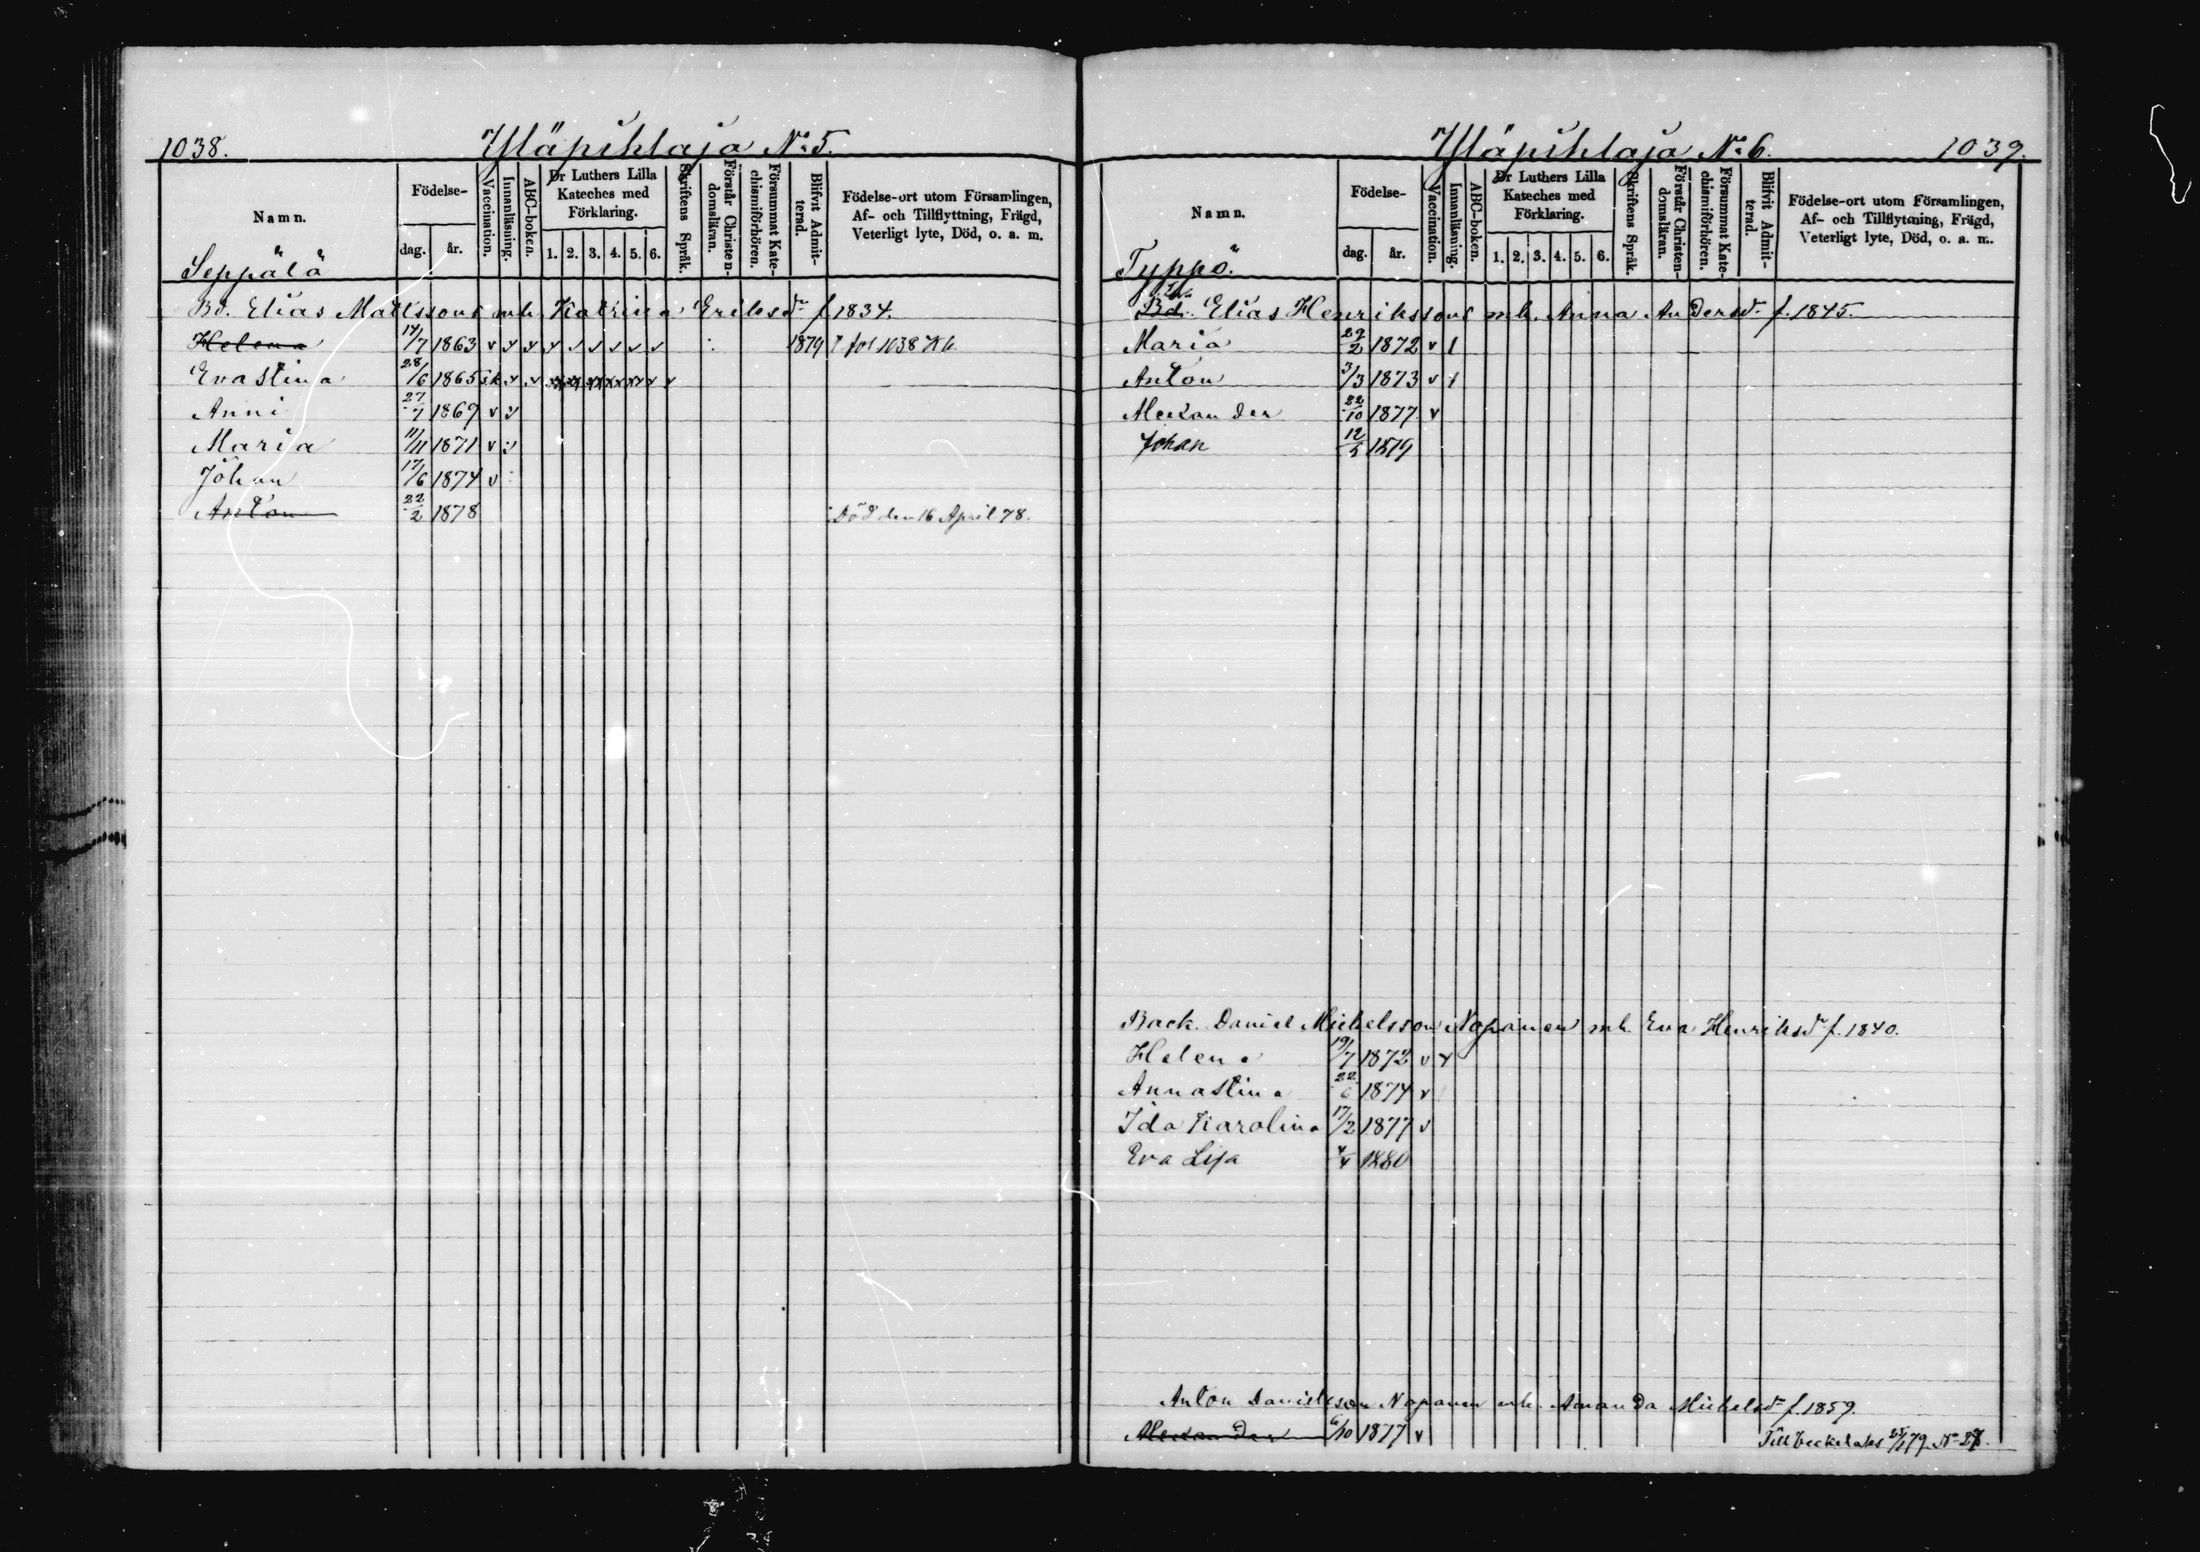 1038. Yläpihlaja No 5.
Namn. Födelse- dag. år. Vaccination. Innanläsning. ABC-boken. Dr Luthers Lilla Kateches med Förklaring. 1. 2. 3. 4. 5. 6. Skriftens Språk. Förstår Christendomsläran. Försummat Katechismiförhören. Blifvit Admitterad. Födelse-ort utom Församlingen, Af- och Tillflyttning, Frägd, Veterligt lyte, Död, o. a. m.
Seppälä
Bd. Elias Mattssons mh. Katrina Eriksdr f. 1834.
Helena 14/7 1863 v 1879 fol 1038
Evastina 28/6 1865
Anni 27/7 1869 v
Maria 11/11 1871 v
Johan 17/6 1874 v
Anton 22/2 1878 Död den 16 April 78.
Yläpihlaja No 6. 1039.
Namn. Födelse- dag. år. Vaccination. Innanläsning. ABC-boken. Dr Luthers Lilla Kateches med Förklaring. 1. 2. 3. 4. 5. 6. Skriftens Språk. Förstår Christendomsläran. Försummat Katechismiförhören. Blifvit Admitterad. Födelse-ort utom Församlingen, Af- och Tillflyttning, Frägd, Veterligt lyte, Död, o. a. m.
Typpö.
Bd. Elias Henrikssons mh. Anna Andersdr f. 1845.
Maria 29/2 1872 v
Anton 3/3 1873 v
Alexander 22/10 1877 v
Johan 12/5 1879
Back. Daniel Michelsson Napanen mh. Eva Henriksdr f. 1840.
Helena 19/7 1872 v
Annastina 22/6 1874 v
Ida Karolina 17/2 1877 v
Eva Lisa 4/4 1880
Anton Danielsson Napanen mh. Amanda Michelsdr f. 1859.
Alexander 6/10 1877 v Till Veckelaks 79 No 27.